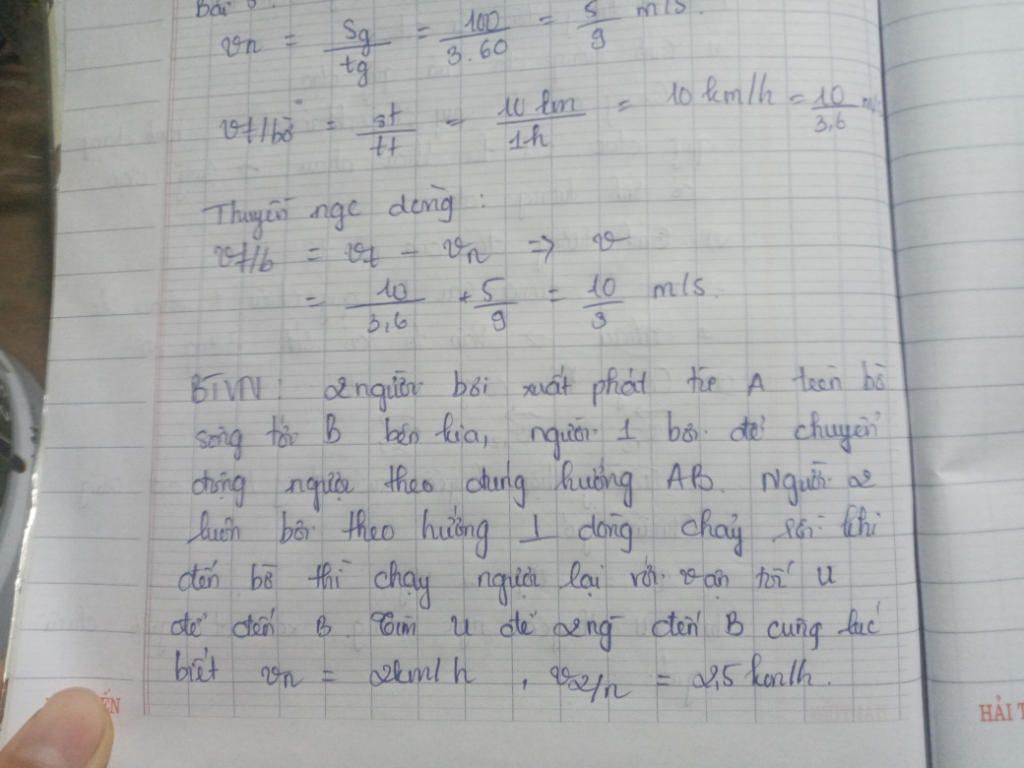 Bài
vn = Sg/tg = 100/3.60 = 5/9 m/s.
vt/bờ = st/tt = 10 km/1h = 10 km/h = 10/3,6
Thuyền ngc dòng:
vt/b = vt - vn => v
= 10/3,6 + 5/9 = 10/3 m/s.
BTVN: 2 người bơi xuất phát từ A trên bờ
sông tới B bên kia, người 1 bơi để chuyển
động người theo đúng hướng AB. Người 2
luôn bơi theo hướng ⊥ dòng chảy rồi khi
đến bờ thì chạy ngược lại với vận tốc u
để đến B. Tìm u để 2ng đến B cùng lúc
biết vn = 2km/h, v2/n = 2,5 km/h.
ẾN
HẢI T